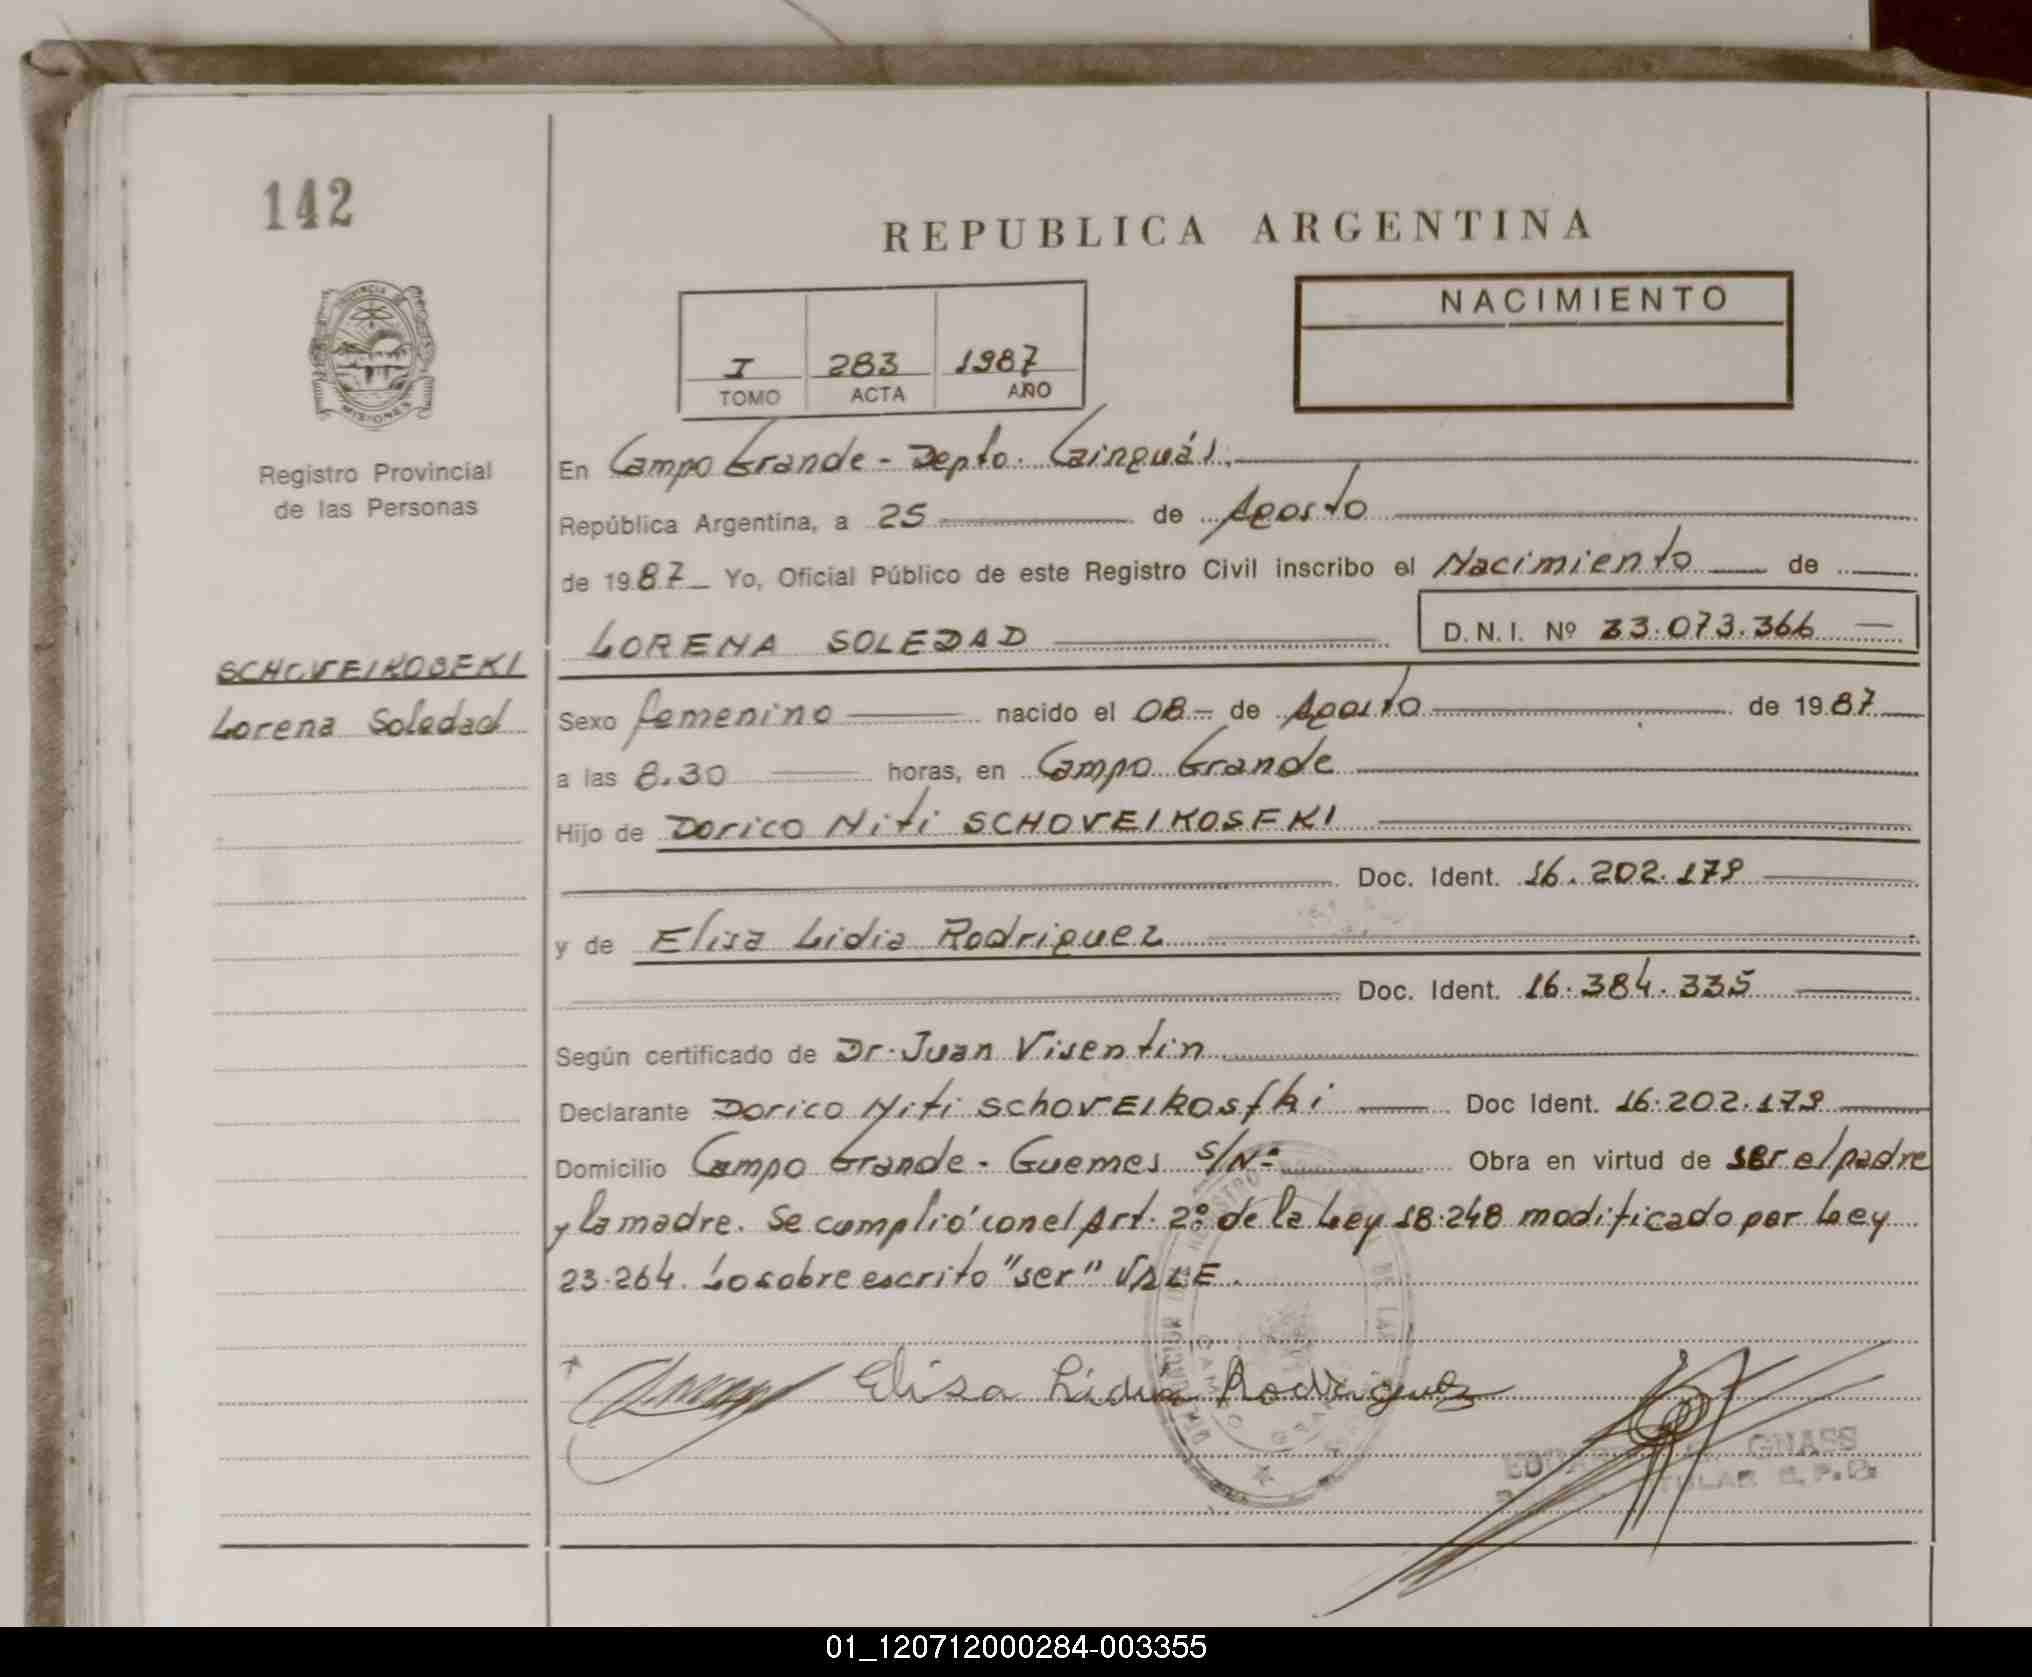 142
REPUBLICA ARGENTINA
NACIMIENTO
I 283 1987
TOMO ACTA AÑO
PROVINCIA DE
MISIONES
Registro Provincial
de las Personas
En Campo Grande - Depto. Cainguás.
República Argentina, a 25 de Agosto
de 1987 Yo, Oficial Público de este Registro Civil inscribo el Nacimiento de
LORENA SOLEDAD D.N.I. Nº 33.073.366
SCHOVEIKOSFKI
Lorena Soledad
Sexo femenino nacido el 08 - de Agosto de 1987
a las 8.30 horas, en Campo Grande
Hijo de Dorico Niti SCHOVEIKOSFKI
Doc. Ident. 16.202.179
y de Elisa Lidia Rodriguez
Doc. Ident. 16.384.335
Según certificado de Dr. Juan Visentin
Declarante Dorico Niti SchoVEIkosfki Doc Ident. 16.202.179
Domicilio Campo Grande - Guemes S/Nº Obra en virtud de ser el padre
y la madre. Se cumplió con el Art. 2º de la Ley 18.248 modificado por Ley
23.264. Lo sobre escrito "ser" VALE.
Elisa Lidia Rodriguez
GNASS
01_120712000284-003355